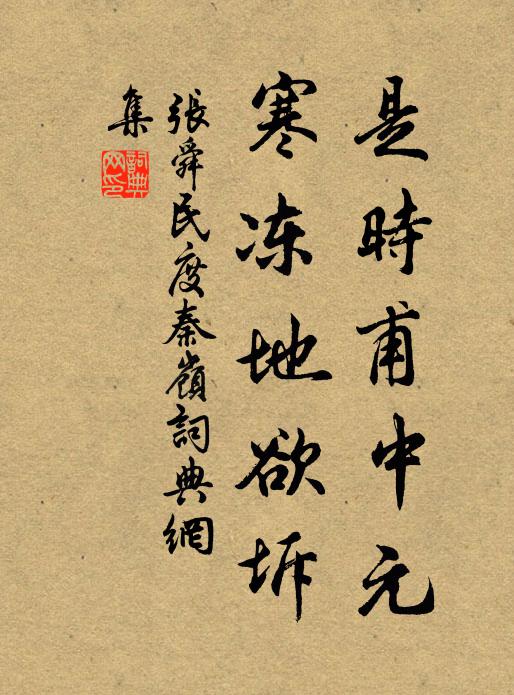 是時甫中元
寒冻地欲坼
張舜民度秦嶺詞典網
集
詞典
网印